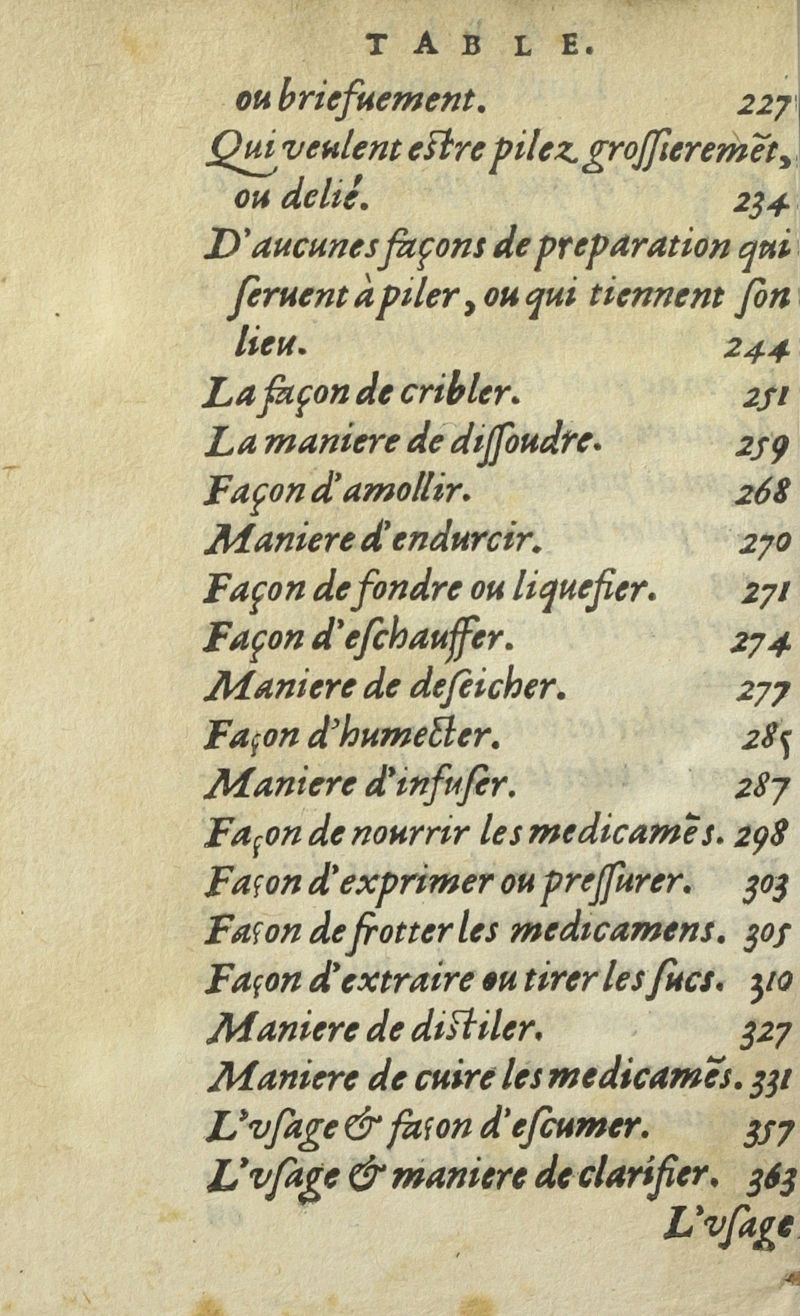 TABLE.
ou briefuement. 227
Qui veulent estre pilez grossieremēt,
ou delié. 234
D'aucunes façons de preparation qui
seruent à piler, ou qui tiennent son
lieu. 244
La façon de cribler. 251
La maniere de dissoudre. 259
Façon d'amollir. 268
Maniere d'endurcir. 270
Façon de fondre ou liquefier. 271
Façon d'eschauffer. 274
Maniere de deseicher. 277
Façon d'humecter. 285
Maniere d'infuser. 287
Façon de nourrir les medicamēs. 298
Façon d'exprimer ou pressurer. 303
Façon de frotter les medicamens. 305
Façon d'extraire ou tirer les sucs. 310
Maniere de distiler. 327
Maniere de cuire les medicamēs. 331
L'vsage & façon d'escumer. 357
L'vsage & maniere de clarifier. 363
L'vsage